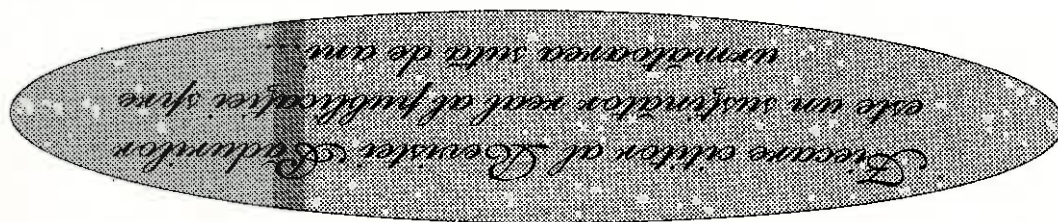 Fiecare cititor al Revistei Pădurilor
este un susținător real al publicației spre
următoarea sută de ani...